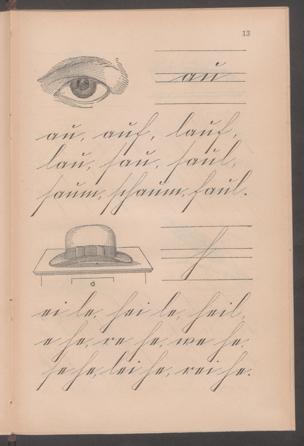 13
au
au, auf, lauf,
lau, sau, saul,
saum, schaum, faul.
h
ei le, hei le, heil,
e he, re he, we he,
se he, lei he, rei he.